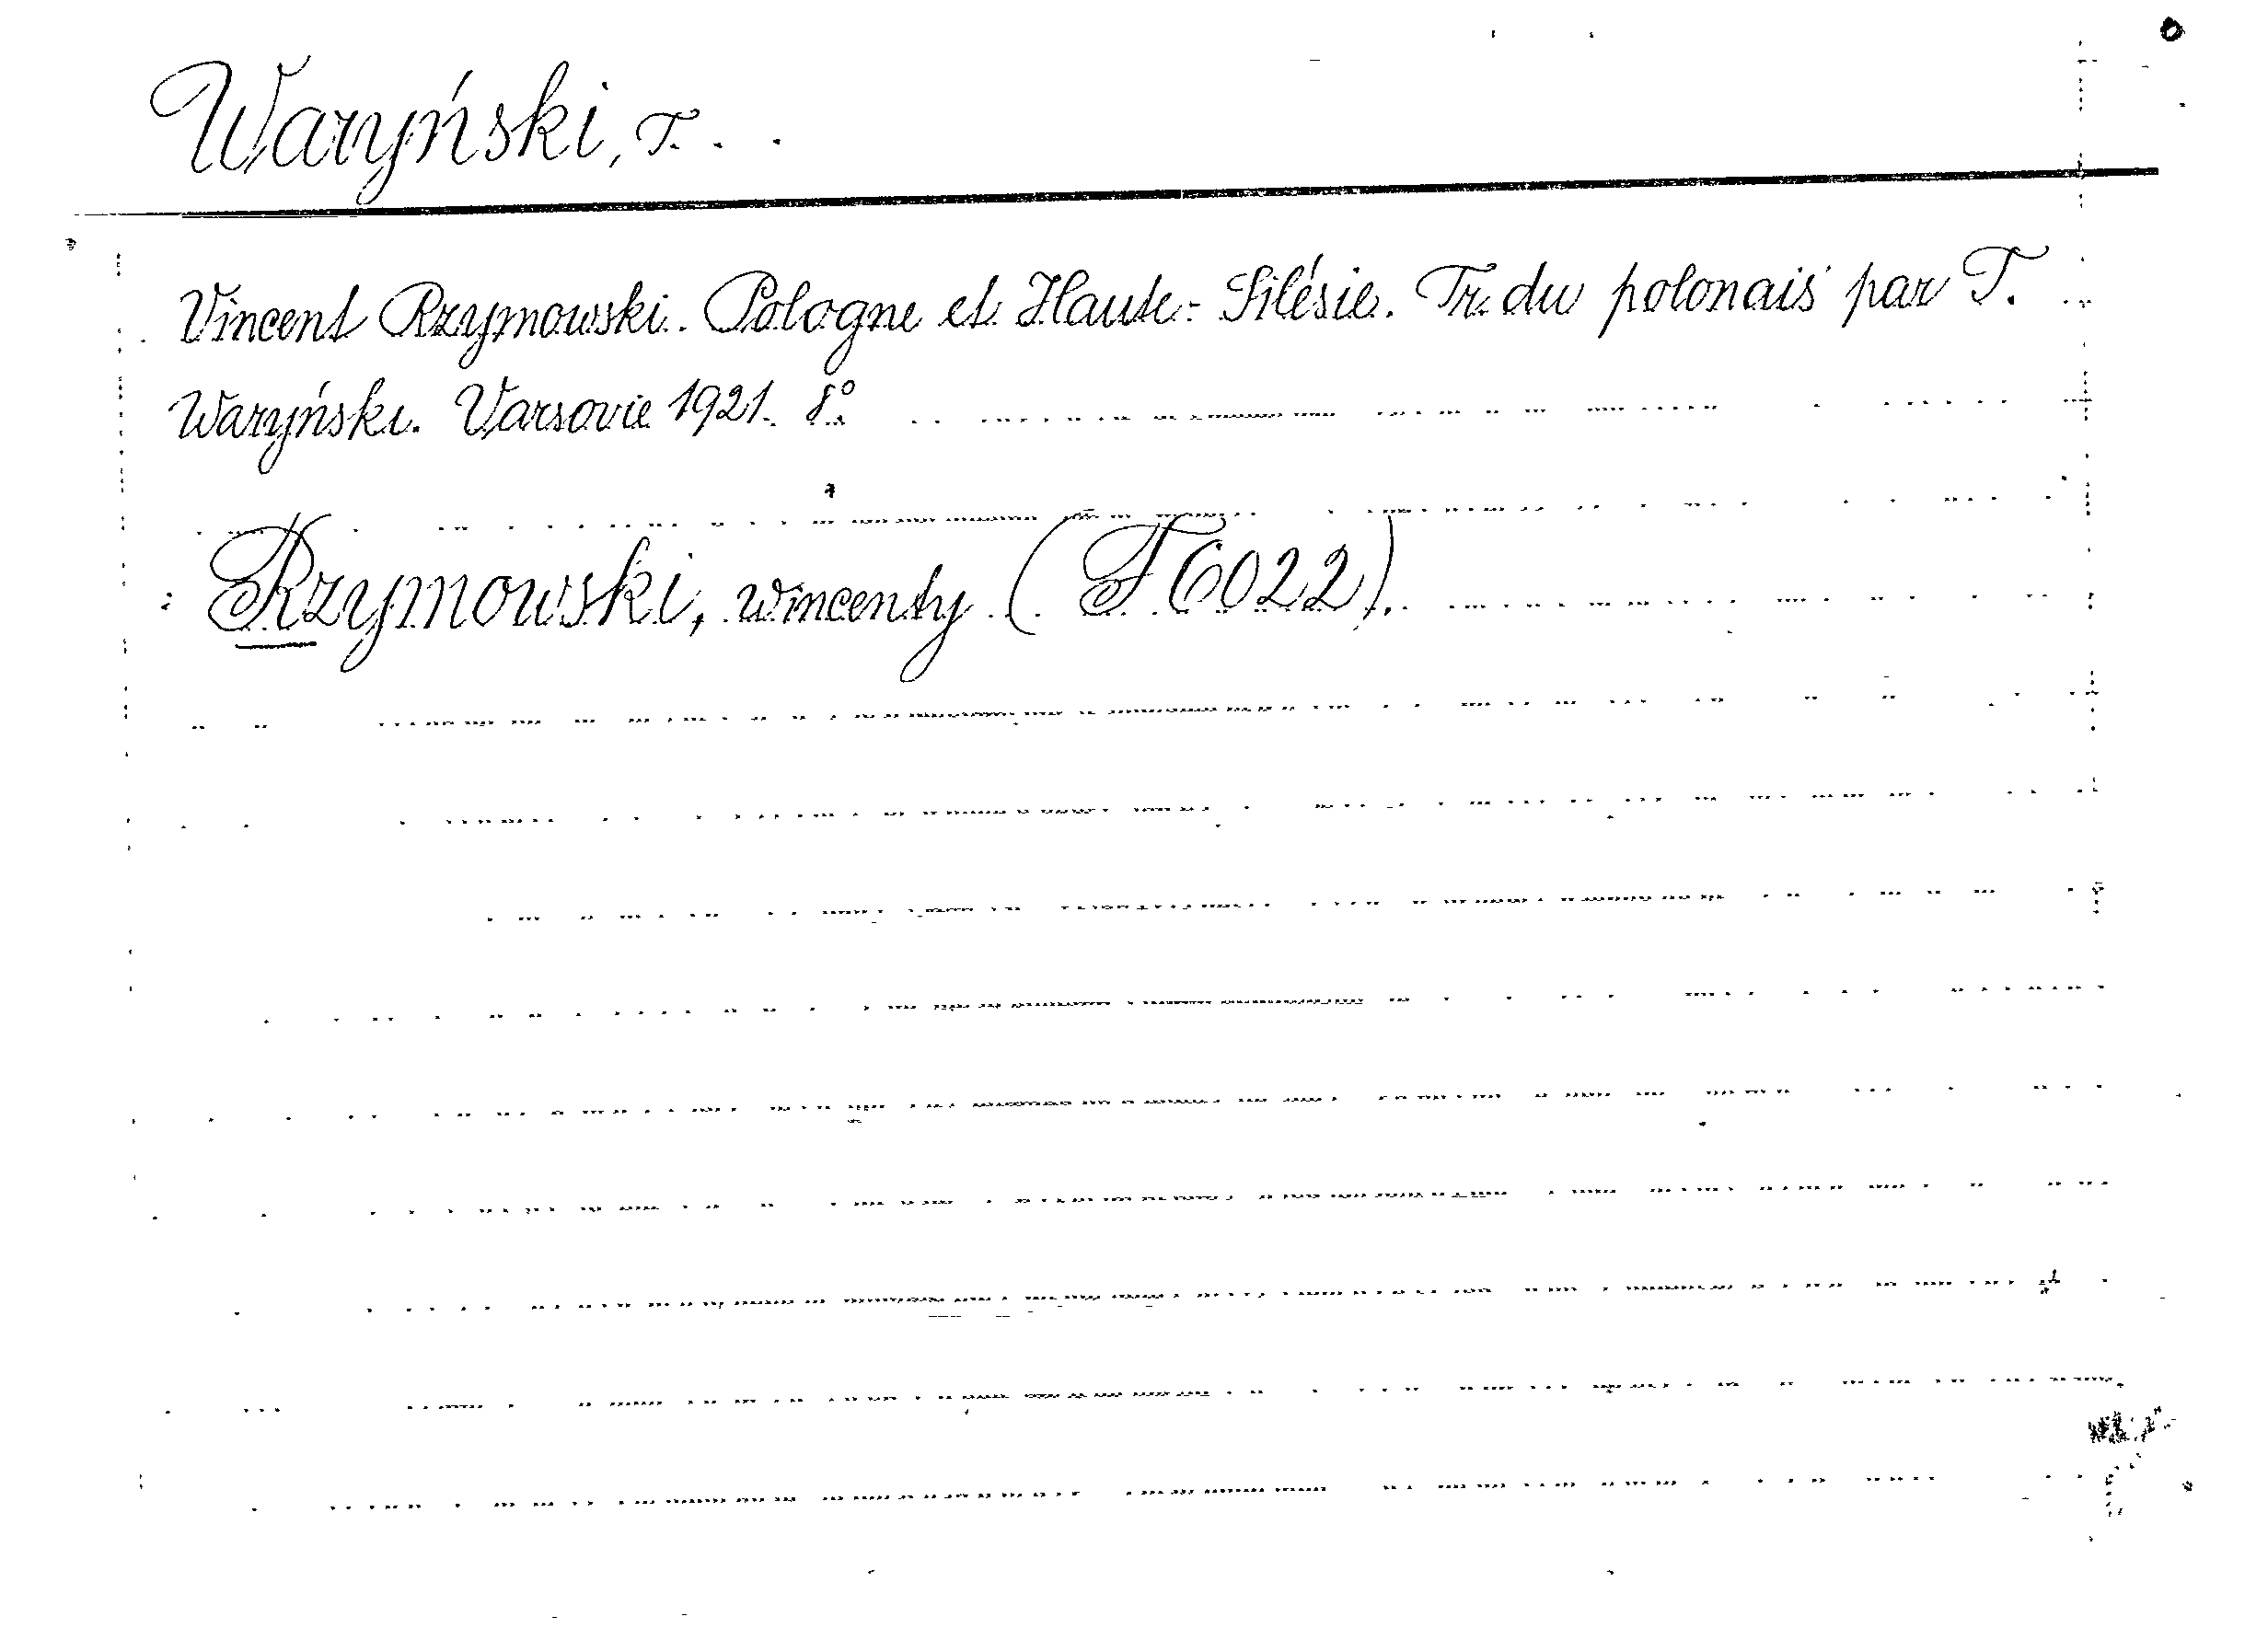 Waryński, T.
Vincent Rzymowski. Pologne et Haute-Silésie. Tr. du polonais par T.
Waryński. Varsovie 1921. 8°.
Rzymowski, Wincenty (F 6022).